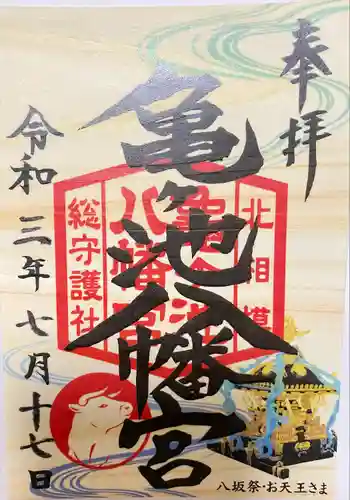 奉拝
亀ヶ池八幡宮
令和三年七月十七日
北相模
亀ヶ池
八幡宮
総守護社
八坂祭・お天王さま